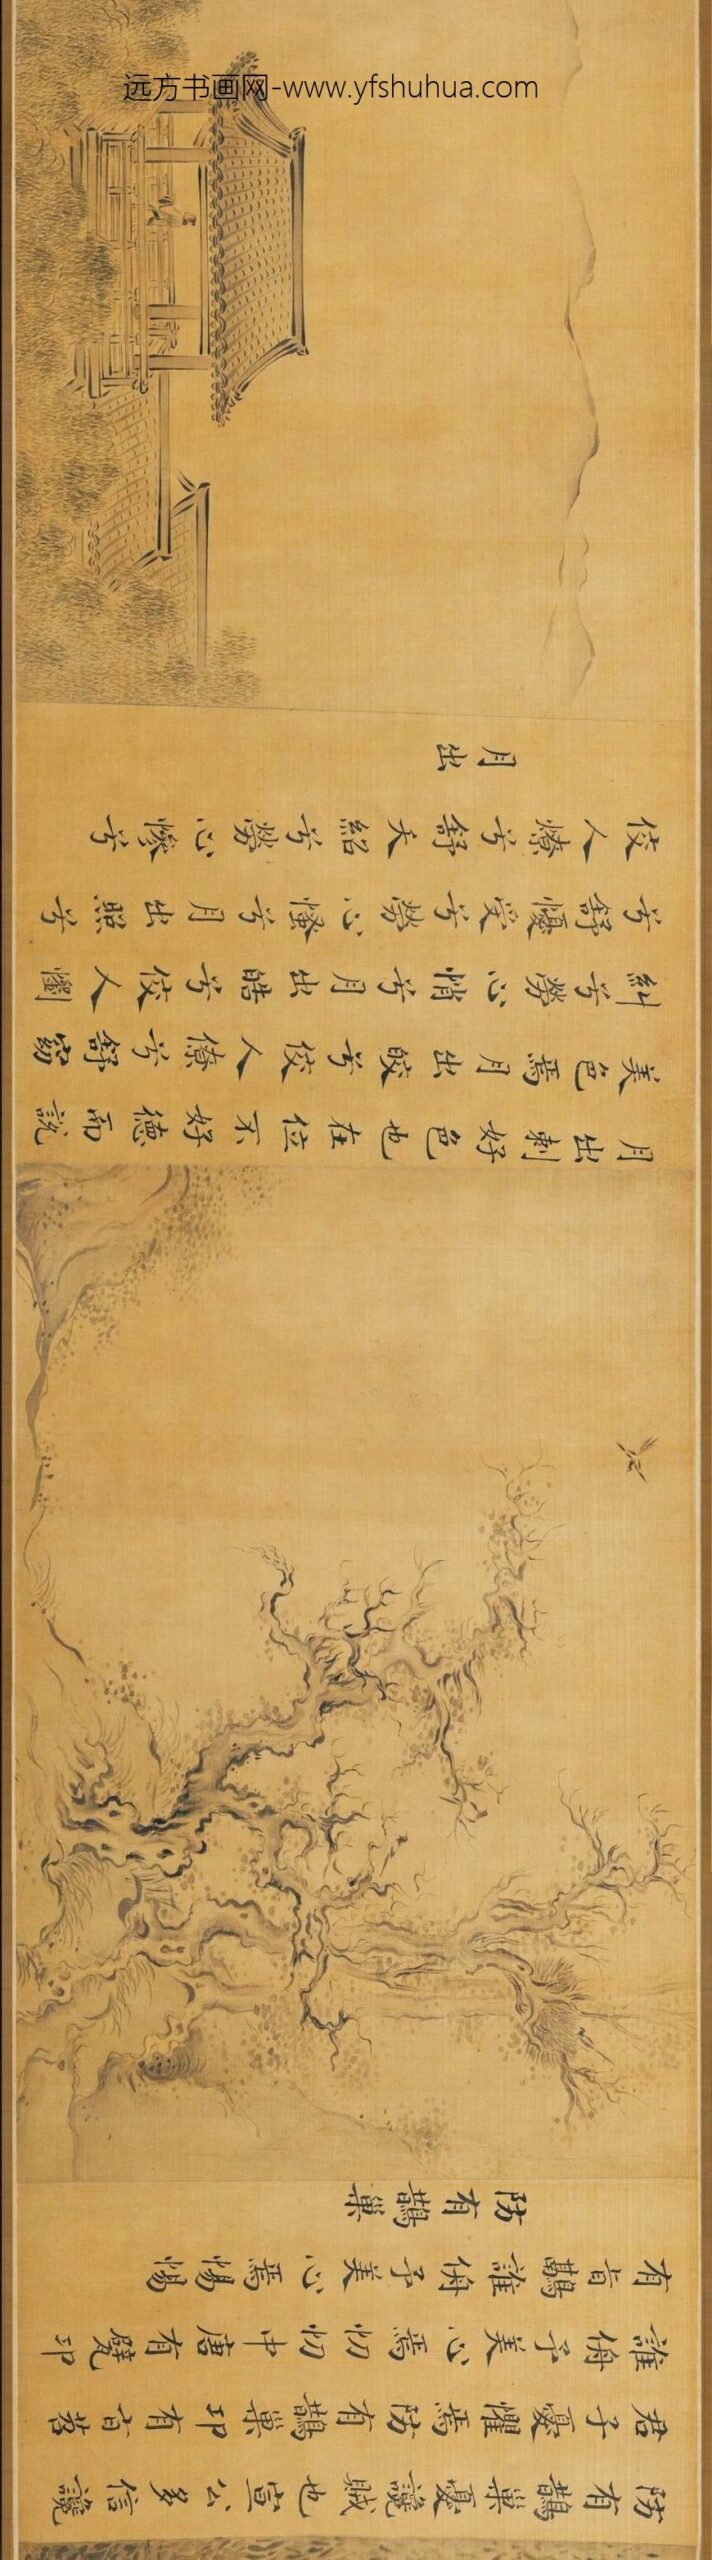 远方书画网-www.yfshuhua.com
防有鵲巢憂讒賊也宣公多信讒
君子憂懼焉防有鵲巢卭有旨苕
誰侜予美心焉忉忉中唐有甓卭
有旨鷊誰侜予美心焉惕惕
防有鵲巢
月出刺好色也在位不好德而說
美色焉月出皎兮佼人僚兮舒窈
糾兮勞心悄兮月出皓兮佼人懰
兮舒懮受兮勞心慅兮月出照兮
佼人燎兮舒夭紹兮勞心慘兮
月出